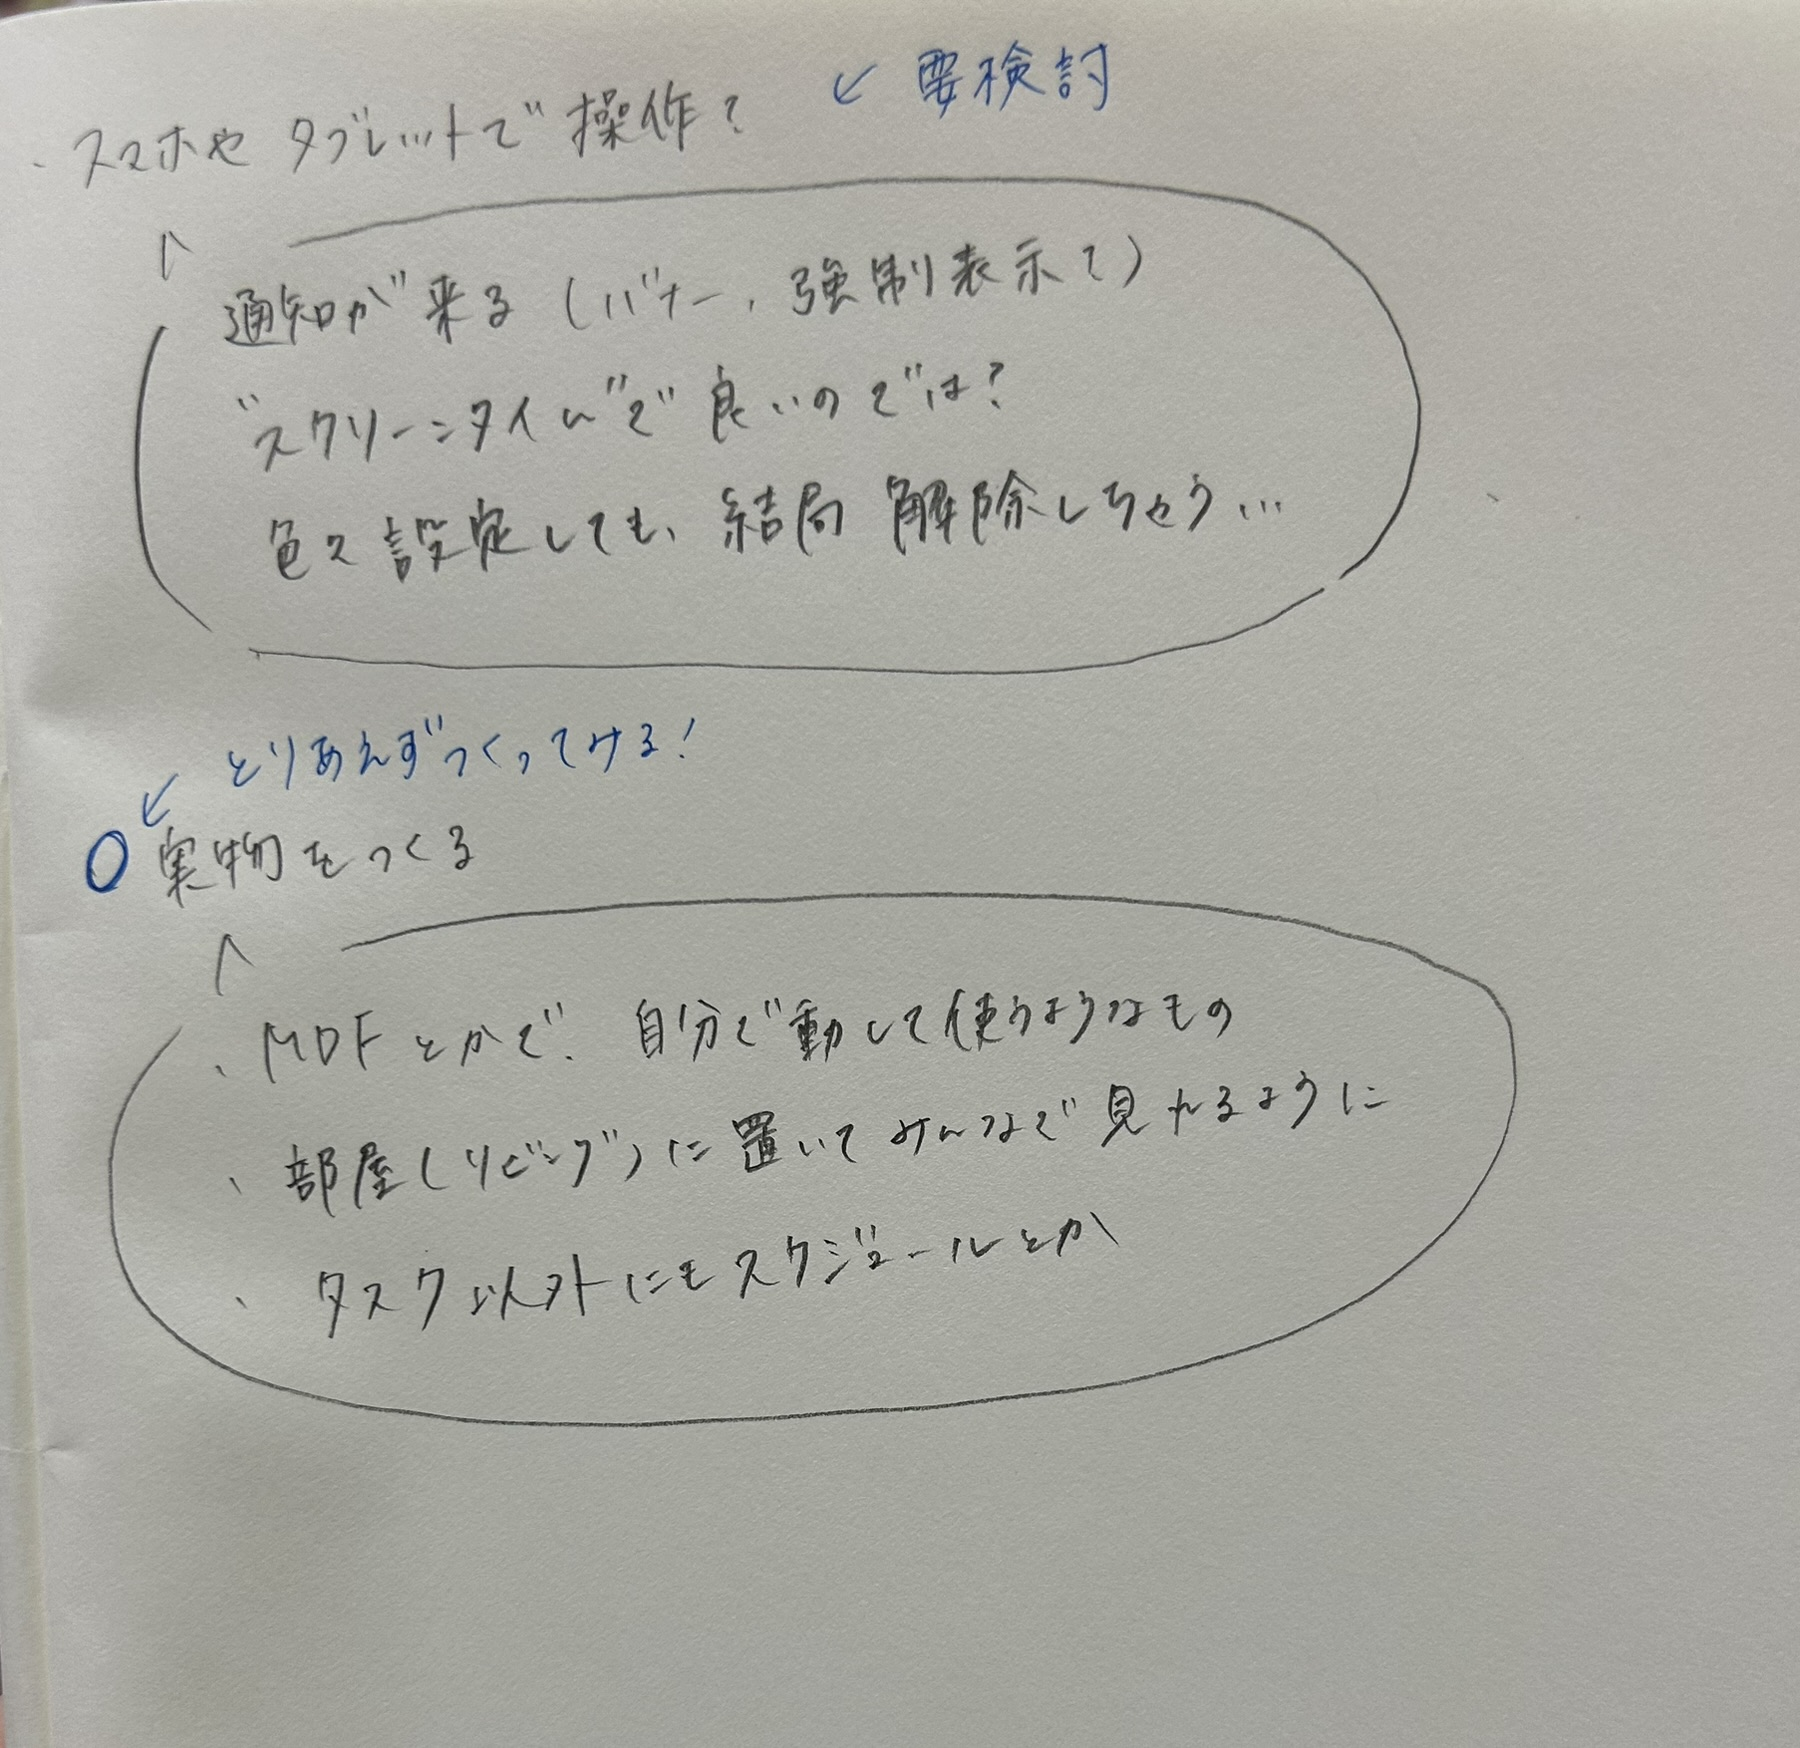 ・スマホや タブレットで 操作? ← 要検討
通知が来る(バナー、強制表示?)
"スクリーンタイム"で良いのでは?
色々設定しても、結局 解除しちゃう…
← とりあえずつくってみる!
○ 実物をつくる
・MDFとかで、自分で動して使うようなもの
・部屋(リビング)に置いてみんなで見れるように
・タスク以外にもスケジュールとか